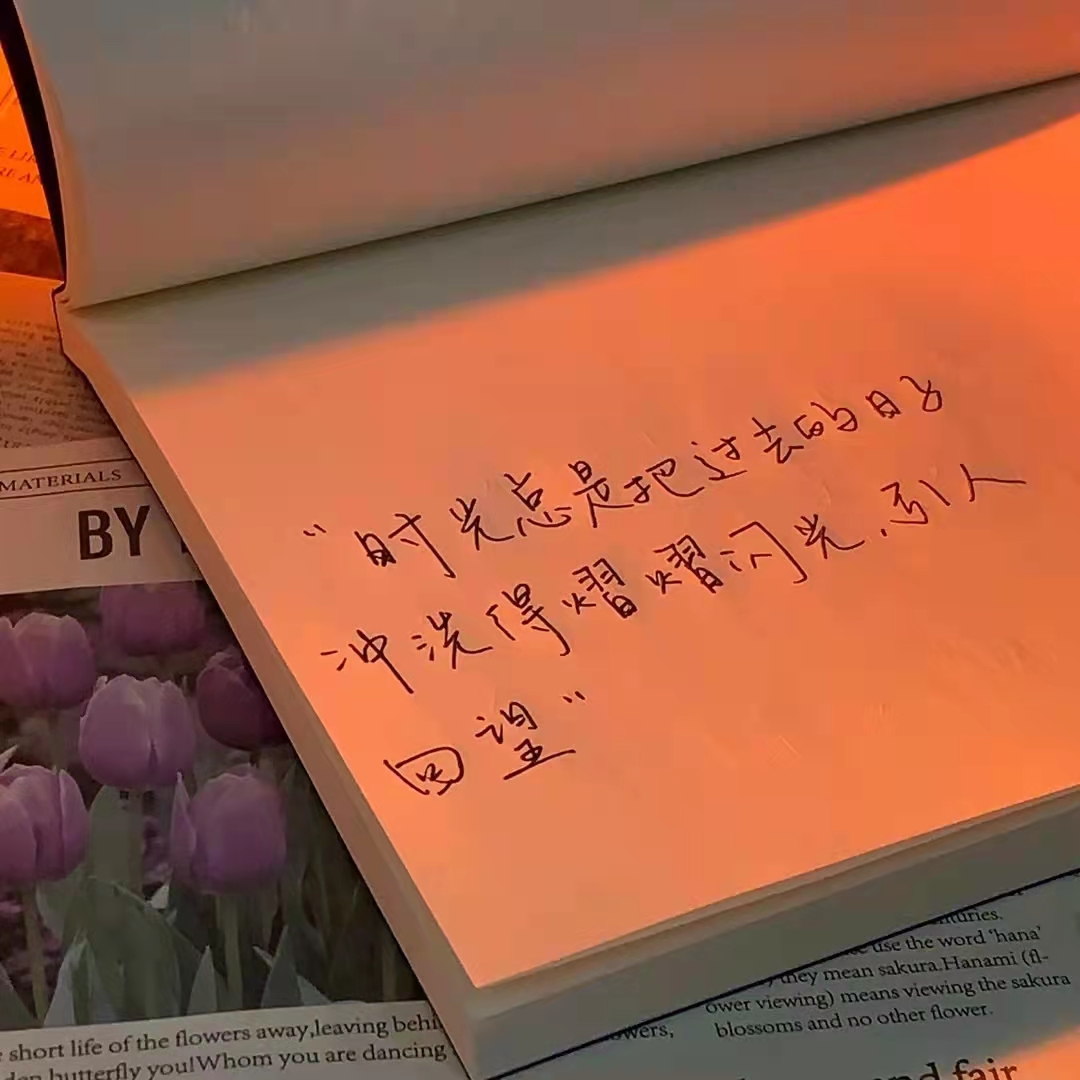 MATERIALS
BY
“时光总是把过去的日子
冲洗得熠熠闪光，引人
回望”
short life of the flowers away,leaving behi
butterfly you!Whom you are dancing
use the word 'hana'
they mean sakura.Hanami (fl-
ower viewing) means viewing the sakura
blossoms and no other flower.
and fair